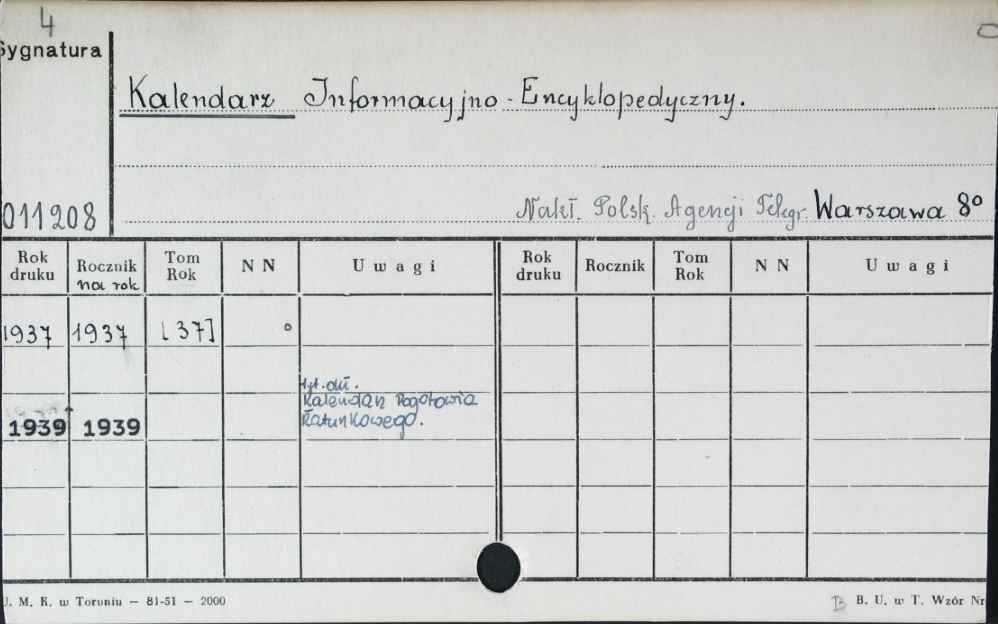 4
Sygnatura
Kalendarz Informacyjno-Encyklopedyczny.
011208
Nakł. Polsk. Agencji Telegr. Warszawa 8°
Rok druku Rocznik na rok Tom Rok N N Uwagi Rok druku Rocznik Tom Rok N N Uwagi
1937 1937 [37] °
tyt. dü.
Kalendarz Pogotowia
1939 1939 Ratunkowego.
J. M. K. w Toruniu — 81-51 — 2000
B B. U. w T. Wzór Nr